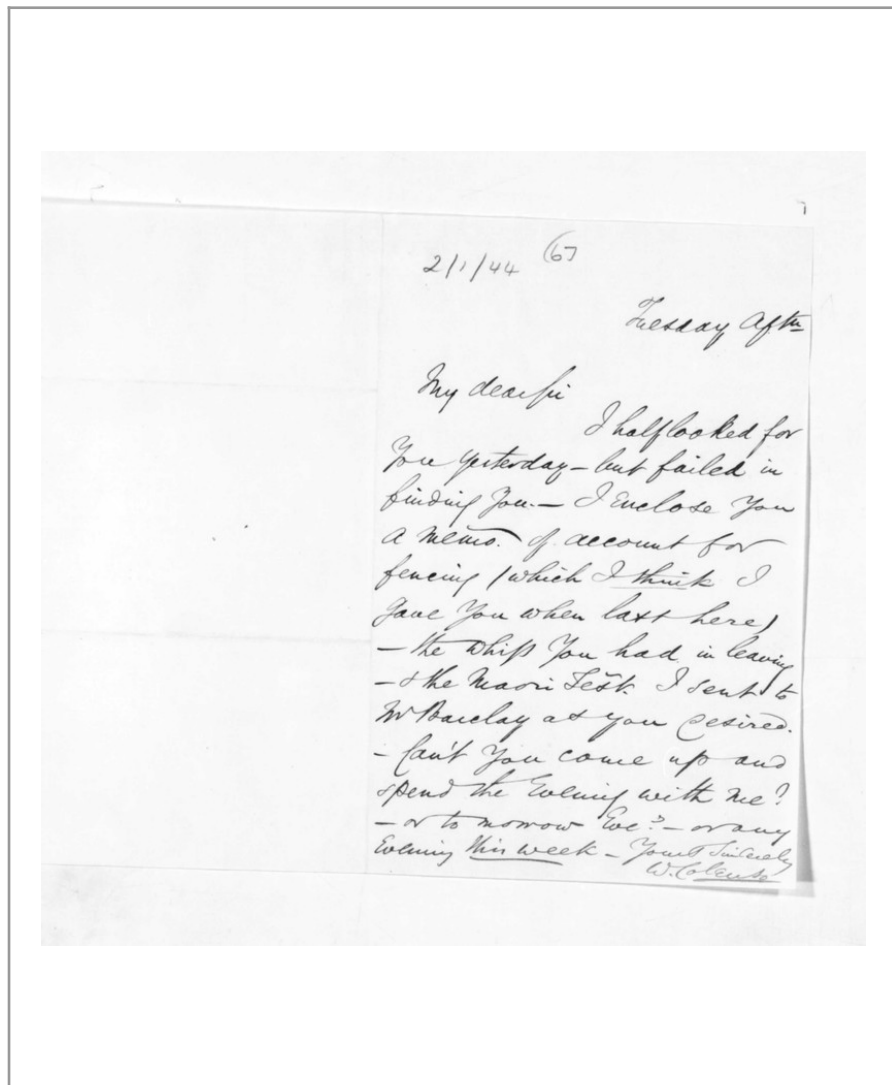 2/1/44 (67
Tuesday Aftn
My dear Sir
I half looked for
You yesterday – but failed in
finding You. – I Enclose You
a memo. of account for
fencing (which I think I
gave You when last here)
– the Whip You had in leaving
– & the Maori Test. I sent to
Mr Barclay as you desired.
– Can't You come up and
spend the Evening with me?
– or to morrow Eve? – or any
Evening this week – Yours Sincerely
W. Colenso